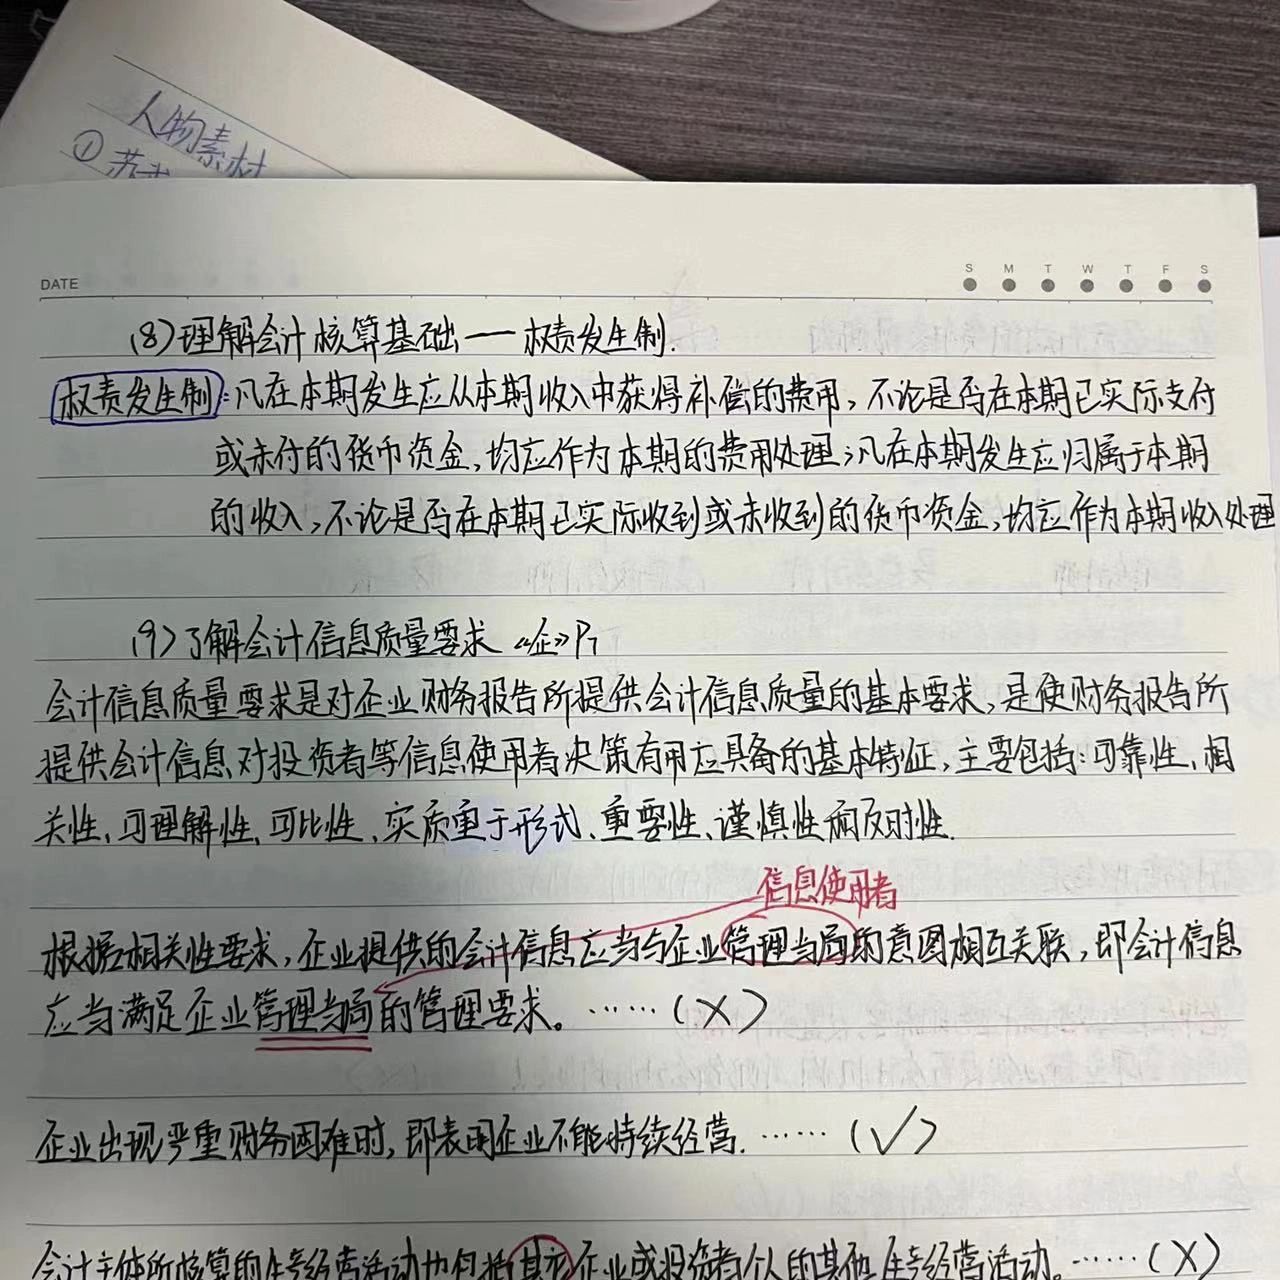 人物素材
①苏
DATE
S M T W T F S
(8)理解会计核算基础——权责发生制.
权责发生制:凡在本期发生应从本期收入中获得补偿的费用,不论是否在本期已实际支付
或未付的货币资金,均应作为本期的费用处理;凡在本期发生应归属于本期
的收入,不论是否在本期已实际收到或未收到的货币资金,均应作为本期收入处理
(9)了解会计信息质量要求 《企》P7
会计信息质量要求是对企业财务报告所提供会计信息质量的基本要求,是使财务报告所
提供会计信息对投资者等信息使用者决策有用应具备的基本特征,主要包括:可靠性、相
关性、可理解性、可比性、实质重于形式、重要性、谨慎性和及时性.
信息使用者
根据相关性要求,企业提供的会计信息应当与企业管理当局的意图相互关联,即会计信息
应当满足企业管理当局的管理要求。……(×)
企业出现严重财务困难时,即表明企业不能持续经营.……(√)
会计主体所核算的生产经营活动也包括其他企业或投资者个人的其他生产经营活动.……(×)